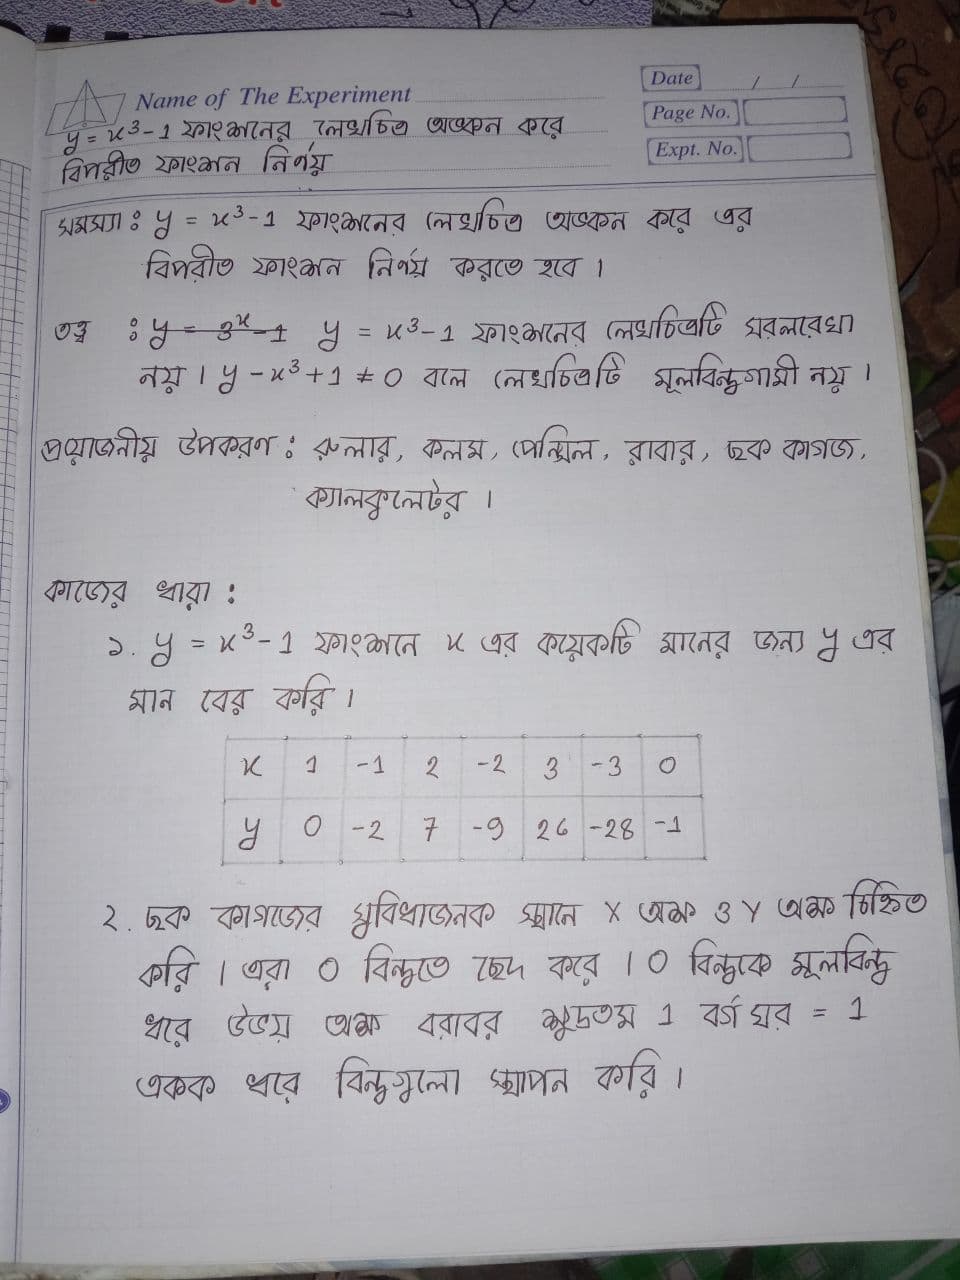 Name of The Experiment
Date / /
Page No.
Expt. No.
y = x³-1 ফাংশনের লেখচিত্র অঙ্কন করে
বিপরীত ফাংশন নির্ণয়
সমস্যা : y = x³-1 ফাংশনের লেখচিত্র অঙ্কন করে এর
বিপরীত ফাংশন নির্ণয় করতে হবে ।
তত্ত্ব : y = 3ˣ-1 y = x³-1 ফাংশনের লেখচিত্রটি সরলরেখা
নয় । y - x³+1 ≠ 0 বলে লেখচিত্রটি মূলবিন্দুগামী নয় ।
প্রয়োজনীয় উপকরণ : রুলার, কলম, পেন্সিল, রাবার, ছক কাগজ,
ক্যালকুলেটর ।
কাজের ধারা :
১. y = x³-1 ফাংশনে x এর কয়েকটি মানের জন্য y এর
মান বের করি ।
x 1 -1 2 -2 3 -3 0
y 0 -2 7 -9 26 -28 -1
২. ছক কাগজের সুবিধাজনক স্থানে X অক্ষ ও Y অক্ষ চিহ্নিত
করি । এরা O বিন্দুতে ছেদ করে । O বিন্দুকে মূলবিন্দু
ধরে উভয় অক্ষ বরাবর ক্ষুদ্রতম 1 বর্গ ঘর = 1
একক ধরে বিন্দুগুলো স্থাপন করি ।